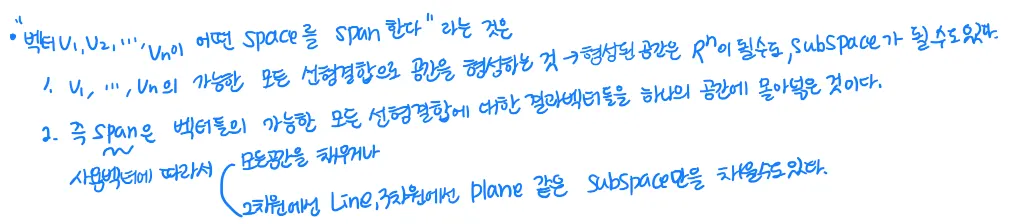 • "벡터 v₁, v₂, ..., vₙ이 어떤 space를 span 한다" 라는 것은
1. v₁, ..., vₙ의 가능한 모든 선형결합으로 공간을 형성하는 것 → 형성된 공간은 Rⁿ이 될수도, subspace가 될 수도있다.
2. 즉 span은 벡터들의 가능한 모든 선형결합에 대한 결과벡터들을 하나의 공간에 몰아넣은 것이다.
사용벡터에 따라서 모든공간을 채우거나
2차원에선 Line, 3차원에선 plane 같은 subspace만을 채울수도있다.